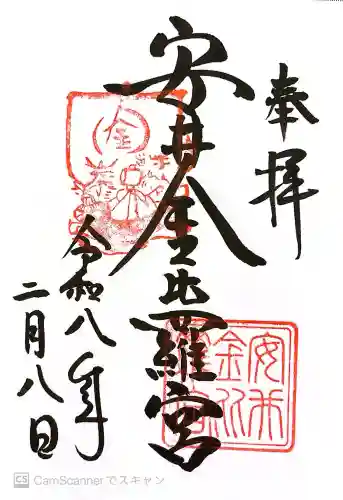 奉拝
安井金比羅宮
令和八年
二月八日
金
CS CamScannerでスキャン